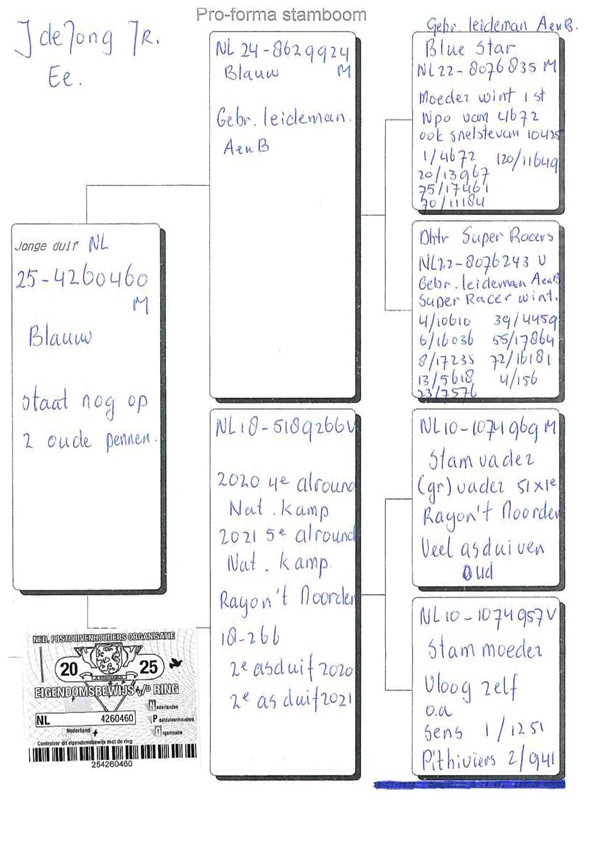 Pro-forma stamboom
J de Jong JR.
Ee.
Jonge duif NL
25-4260460
M
Blauw
staat nog op
2 oude pennen.
NL 24-8629924
Blauw M
Gebr. leideman.
A en B
NL 18-5189266V
2020 4e alround
Nat. Kamp
2021 5e alround
Nat. Kamp
Rayon 't Noorden
18-266
2e asduif 2020
2e asduif 2021
Gebr. leideman A en B.
Blue Star
NL22-8076835 M
Moeder wint 1st
Npo van 4672
ook snelste van 10425
1/4672 120/11649
20/13967
75/17461
70/11184
Dhtr Super Racers
NL22-8076243 V
Gebr. leideman A en B
Super Racer wint.
4/10610 39/4459
6/16036 55/17864
8/17235 72/16181
13/5618 4/156
23/7576
NL10-1074969 M
Stamvader
(gr) vader 51x1e
Rayon 't Noorden
Veel asduiven
Oud
NL10-1074957V
Stammoeder
Vloog zelf
o.a
Sens 1/1251
Pithiviers 2/941
NED. POSTDUIVENHOUDERS ORGANISATIE
20 25
EIGENDOMSBEWIJS v/d RING
NL 4260460
Nederland
Nederlandse
Postduivenhouders
Organisatie
Controleer dit eigendomsbewijs met de ring
254260460